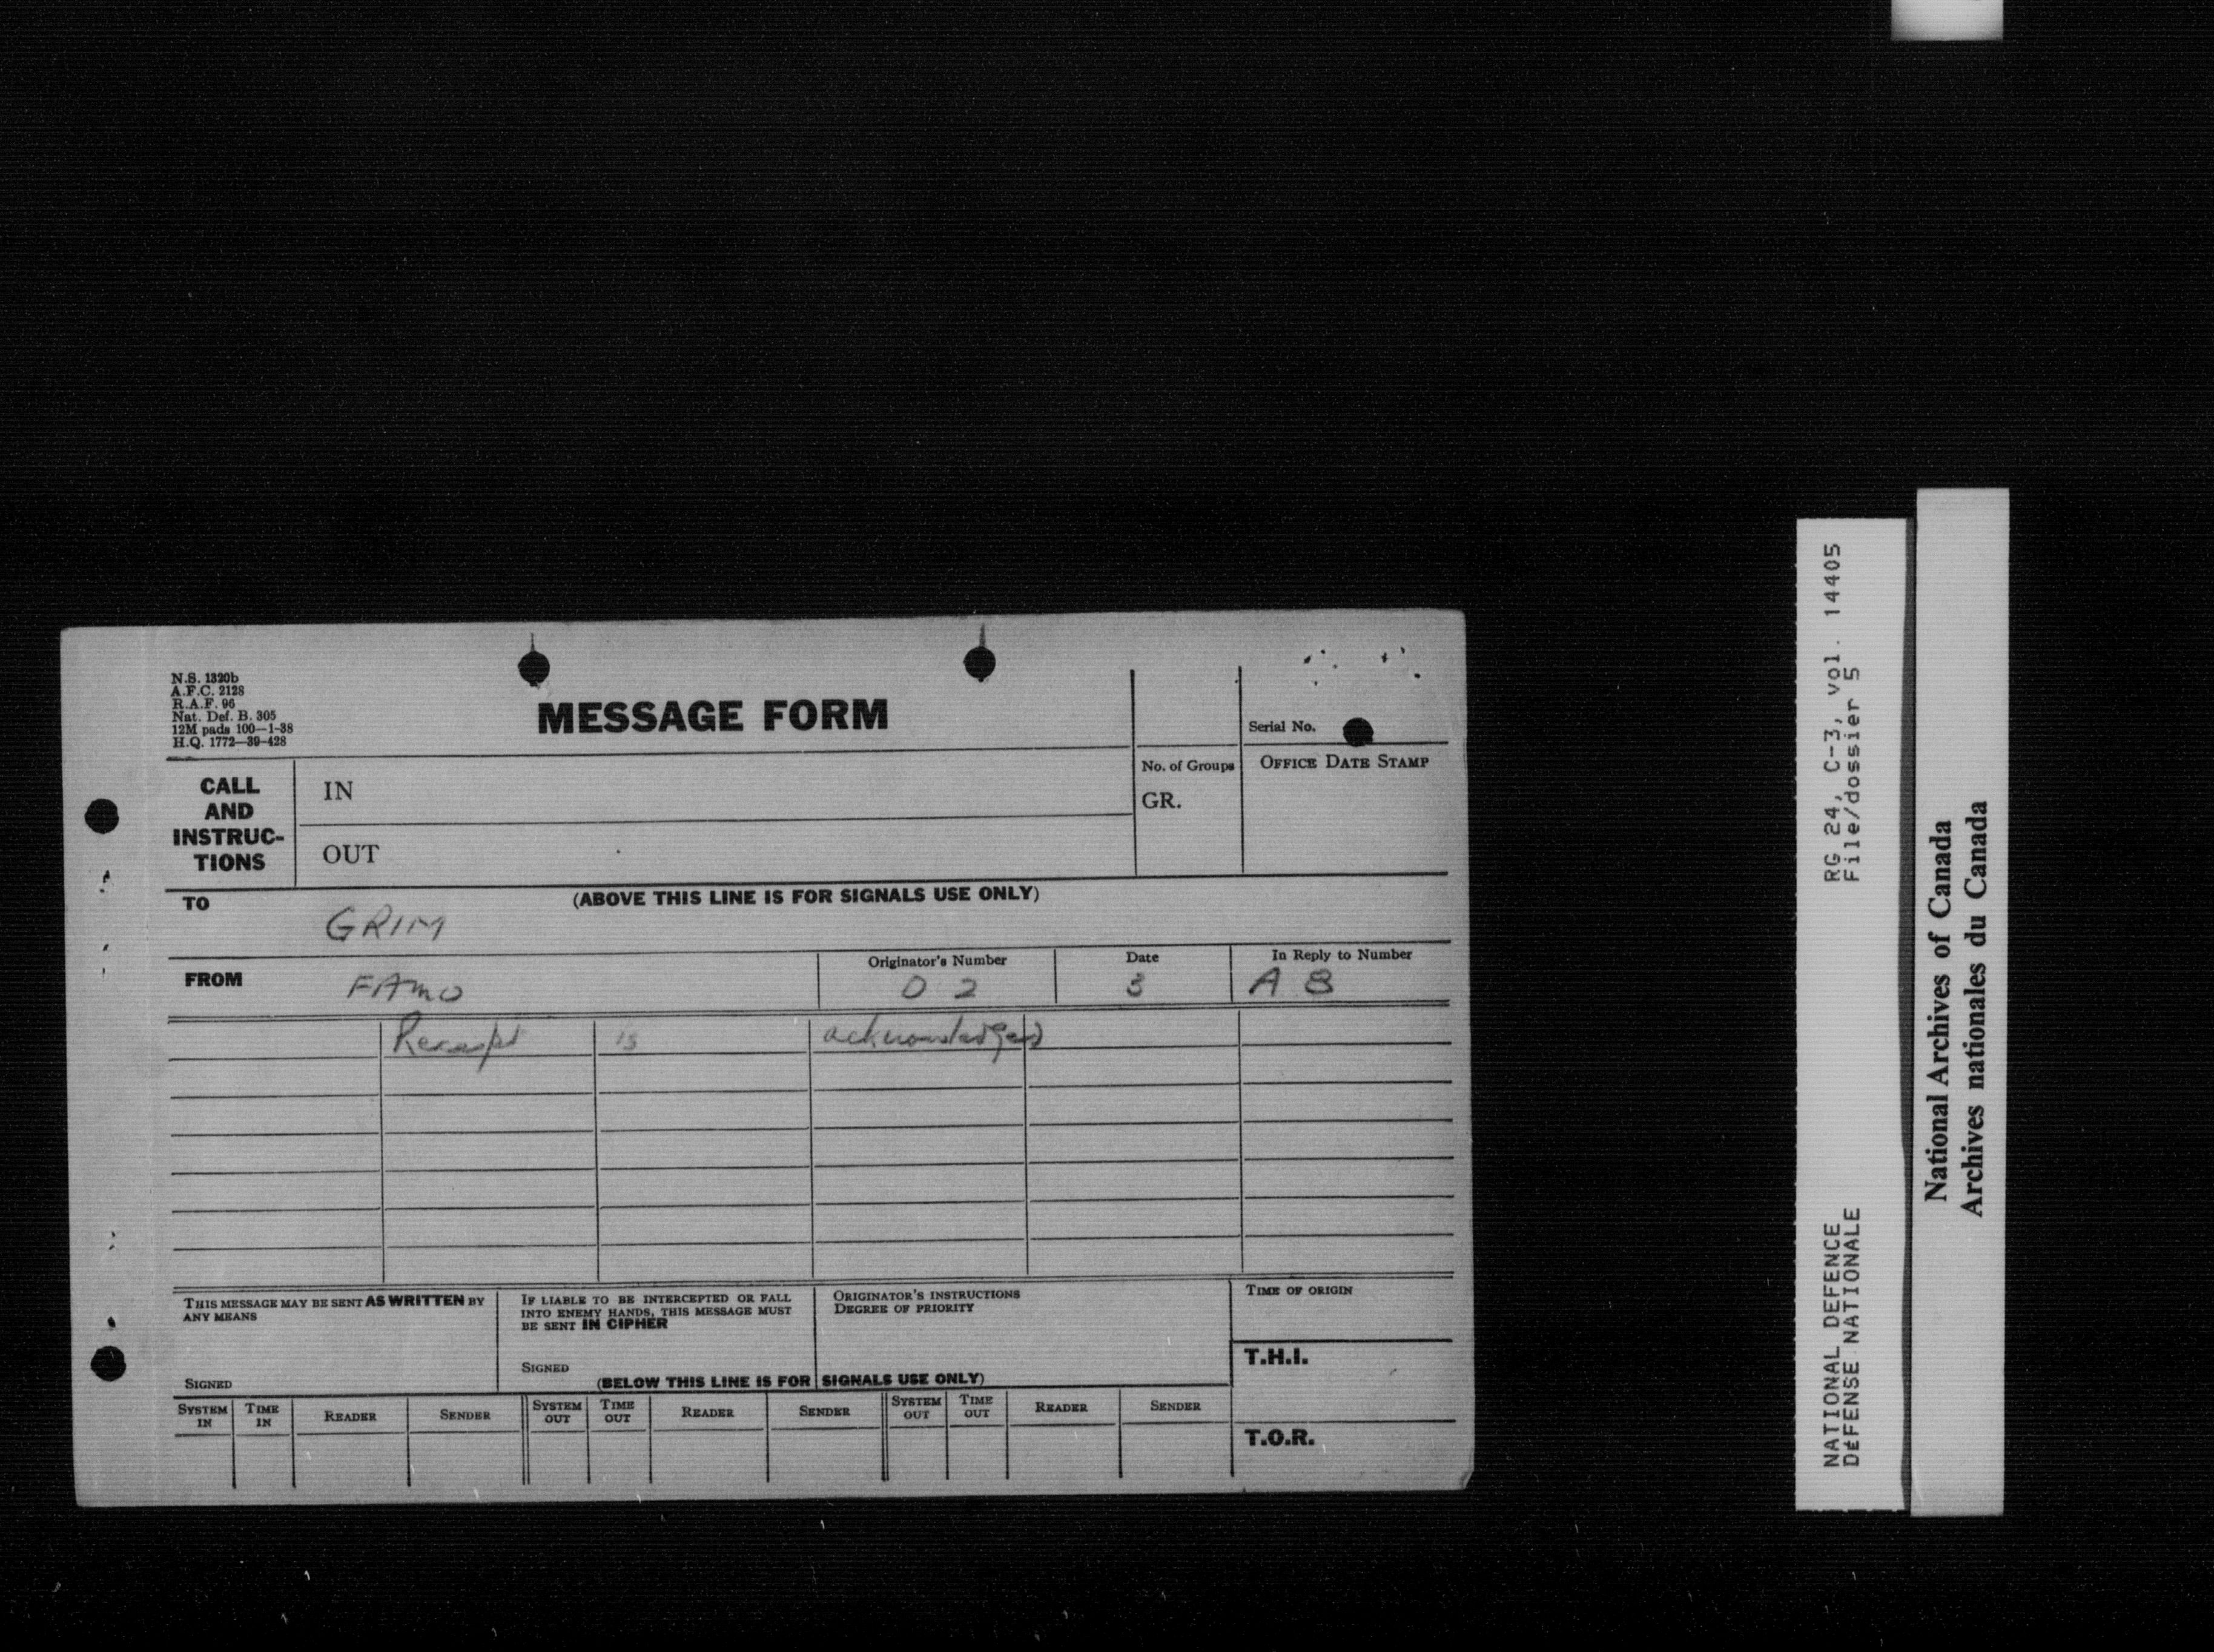 N.S. 1320b
A.F.C. 2128
R.A.F. 96
Nat. Def. B. 305
12M pads 100—1-38
H.Q. 1772—39-428
MESSAGE FORM
Serial No.
CALL AND INSTRUC-TIONS
IN
OUT
No. of Groups
GR.
OFFICE DATE STAMP
(ABOVE THIS LINE IS FOR SIGNALS USE ONLY)
TO
GRIM
FROM
FAMO
Originator's Number
O 2
Date
3
In Reply to Number
A 8
Receipt is acknowledged
THIS MESSAGE MAY BE SENT AS WRITTEN BY
ANY MEANS
SIGNED
IF LIABLE TO BE INTERCEPTED OR FALL
INTO ENEMY HANDS, THIS MESSAGE MUST
BE SENT IN CIPHER
SIGNED
ORIGINATOR'S INSTRUCTIONS
DEGREE OF PRIORITY
TIME OF ORIGIN
T.H.I.
T.O.R.
(BELOW THIS LINE IS FOR SIGNALS USE ONLY)
SYSTEM IN TIME IN READER SENDER SYSTEM OUT TIME OUT READER SENDER SYSTEM OUT TIME OUT READER SENDER
NATIONAL DEFENCE RG 24, C-3, vol. 14405
DÉFENSE NATIONALE File/dossier 5
National Archives of Canada
Archives nationales du Canada